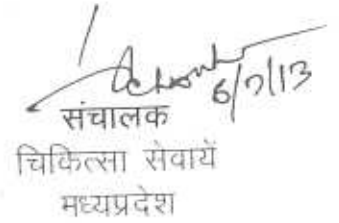 6/7/13
संचालक
चिकित्सा सेवायें
मध्यप्रदेश